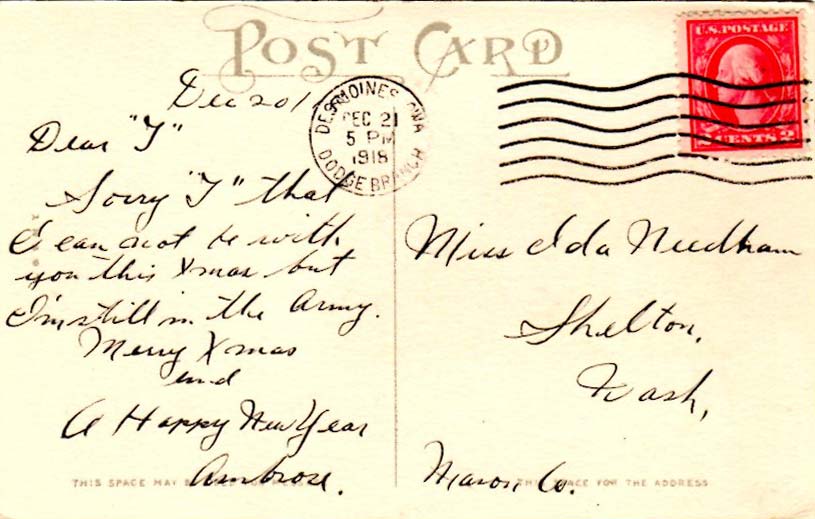 POST CARD
U.S. POSTAGE
2 CENTS 2
DES MOINES, IOWA
DEC 21
5 PM
1918
DODGE BRANCH
Dec 20 1
Dear "I"
Sorry "I" that
I can not be with
you this Xmas but
I'm still in the Army.
Merry Xmas
and
A Happy New Year
Ambrose.
Miss Ida Needham
Shelton,
Wash,
Mason Co.
THIS SPACE MAY
THIS SPACE FOR THE ADDRESS